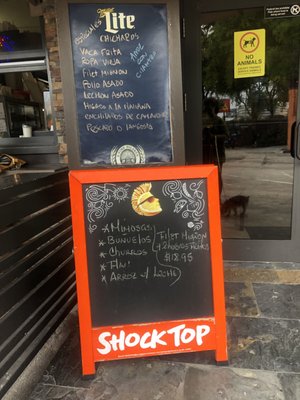 Lite
CHICHAROS
VACA FRITA
ROPA VIEJA
FILET MIGNON
POLLO ASADO
LECHON ASADO
HIGADO A LA ITALIANA
ENCHILADO DE CAMARONES
PESCADO O LANGOSTA
ARROZ CON
NO
ANIMALS
* MIMOSAS
* BUÑUELOS
* CHURROS
* FLAN
* ARROZ c/ LECHE
FILET MIGNON
$18.95
SHOCK TOP